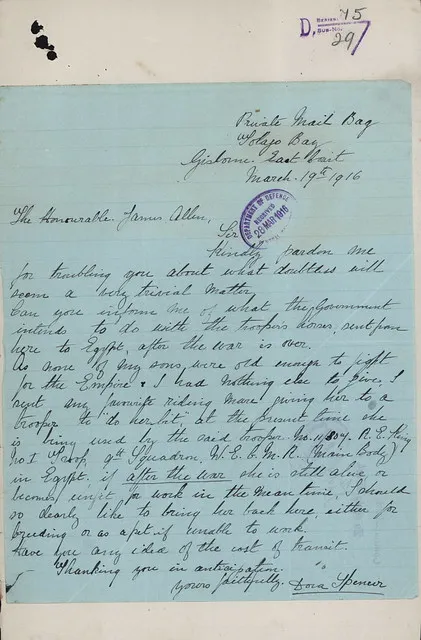 D.
SERIES. 45
SUB-NO. 29
Private Mail Bag
Tolaga Bay
Gisborne. East Coast
March. 19th 1916
DEPARTMENT OF DEFENCE
RECEIVED
28 MAR 1916
The Honourable. James Allen,
Sir
Kindly pardon me
for troubling you about what doubtless will
seem a very trivial matter
Can you inform me of what the Government
intends to do with the troopers horses, sent from
here to Egypt, after the war is over.
As none of my sons, were old enough to fight
for the Empire & I had nothing else to give, I
sent my favourite riding mare giving her to a
trooper to "do her bit," at the present time she
is being used by the said trooper. No. 11/804. R. E. King
No. 1 Troop, 9th Squadron, W. E. C. M. R. (Main Body)
in Egypt, if after the war she is still alive or
becomes unfit for work in the mean time, I should
so dearly like to bring her back here, either for
breeding or as a pet if unable to work.
Have you any idea of the cost of transit.
Thanking you in anticipation.
Yours faithfully. Dora Spencer